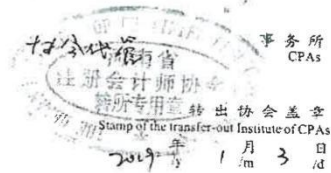 事务所
CPAs
湖南省
注册会计师协会
转所专用章
转出协会盖章
Stamp of the transfer-out Institute of CPAs
2019年 1月 3日
/y /m /d